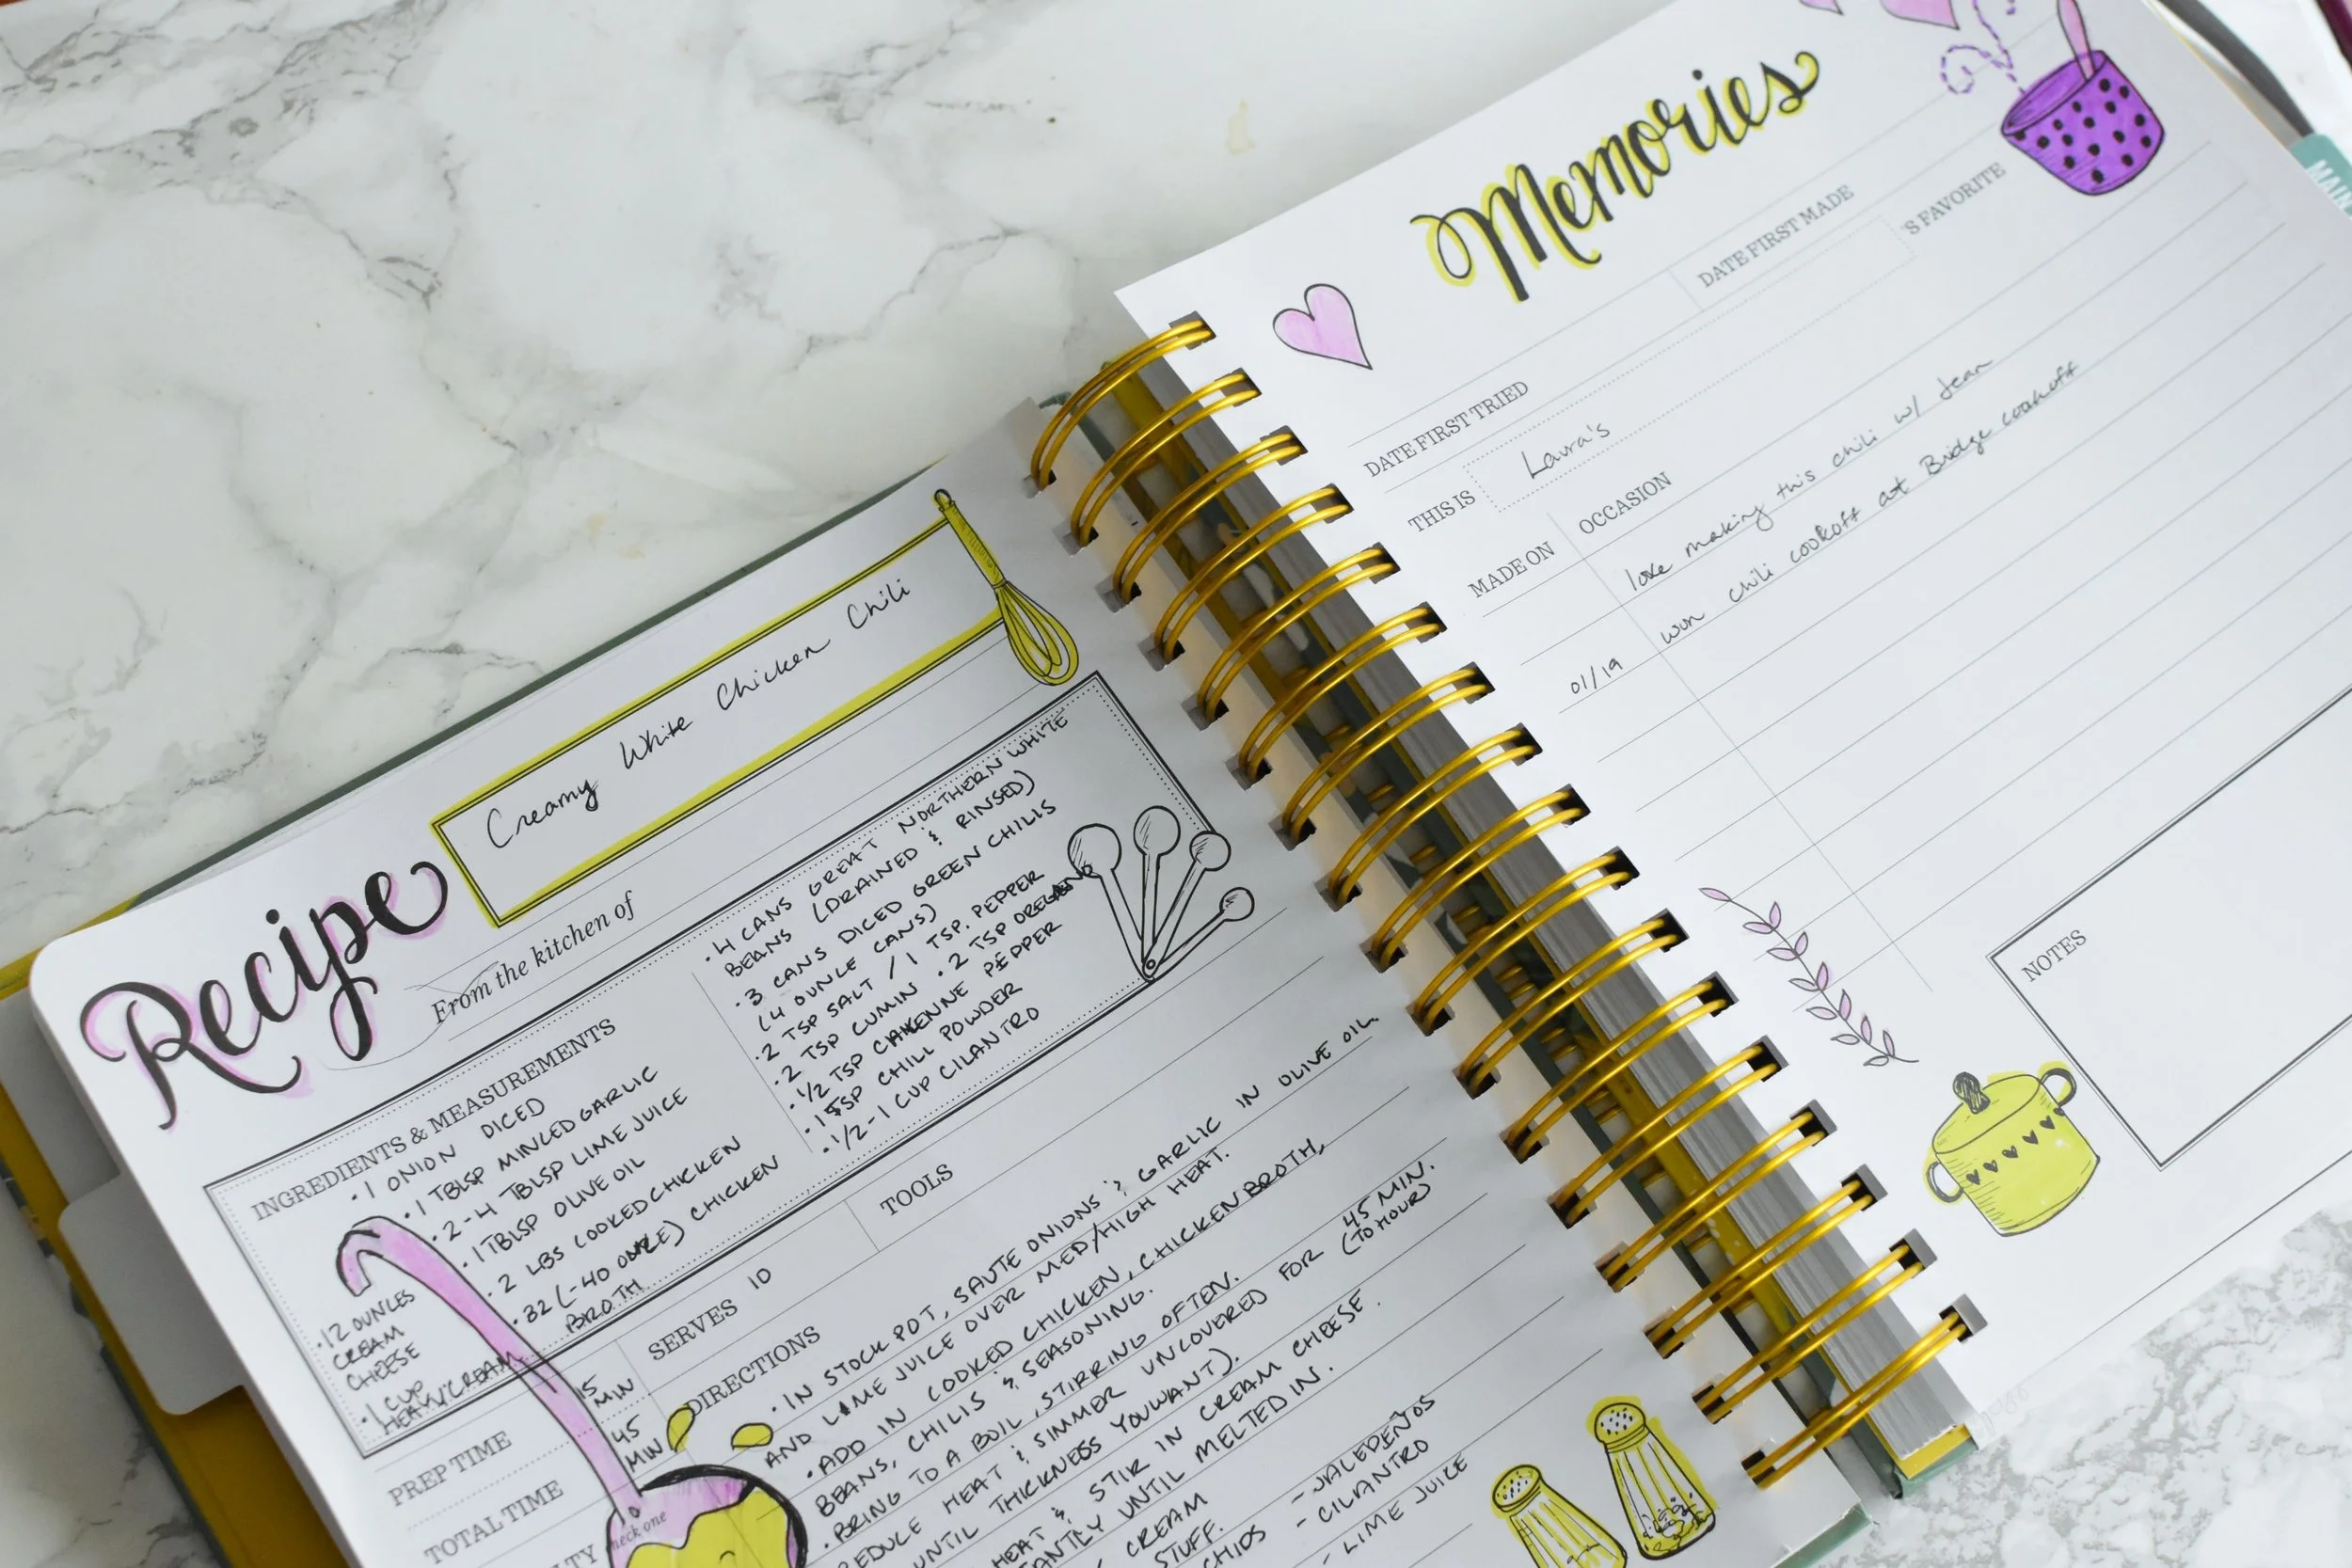 Recipe
Creamy White Chicken Chili
From the kitchen of
INGREDIENTS & MEASUREMENTS
· 1 ONION DICED
· 1 TBLSP MINCED GARLIC
· 2-4 TBLSP LIME JUICE
· 1 TBLSP OLIVE OIL
· 2 LBS COOKED CHICKEN
· 32 (-40 OUNCE) CHICKEN
BROTH
· 12 OUNCES
CREAM
CHEESE
· 1 CUP
HEAVY CREAM
· 4 CANS GREAT NORTHERN WHITE
BEANS (DRAINED & RINSED)
· 3 CANS DICED GREEN CHILLS
(4 OUNCE CANS)
· 2 TSP SALT / 1 TSP. PEPPER
· 2 TSP CUMIN · 2 TSP OREGANO
· 1/2 TSP CAYENNE PEPPER
· 1 TSP CHILL POWDER
· 1/2-1 CUP CILANTRO
PREP TIME 15 MIN
TOTAL TIME 45 MIN
SERVES 10
TOOLS
DIRECTIONS
· IN STOCK POT, SAUTE ONIONS & GARLIC IN OLIVE OIL
AND LIME JUICE OVER MED/HIGH HEAT.
· ADD IN COOKED CHICKEN, CHICKEN BROTH,
BEANS, CHILIS & SEASONING.
· BRING TO A BOIL, STIRRING OFTEN.
REDUCE HEAT & SIMMER UNCOVERED FOR 45 MIN.
(TO HOUR)
UNTIL THICKNESS YOU WANT).
HEAT & STIR IN CREAM CHEESE.
UNTIL MELTED IN.
CREAM
STUFF.
- JALEPEÑOS
- CILANTRO
- LIME JUICE
Memories
DATE FIRST TRIED
DATE FIRST MADE
THIS IS Laura's 'S FAVORITE
MADE ON
OCCASION
love making this chili w/ Jean
01/19 won chili cookoff at Bridge cookoff
NOTES
MAIN